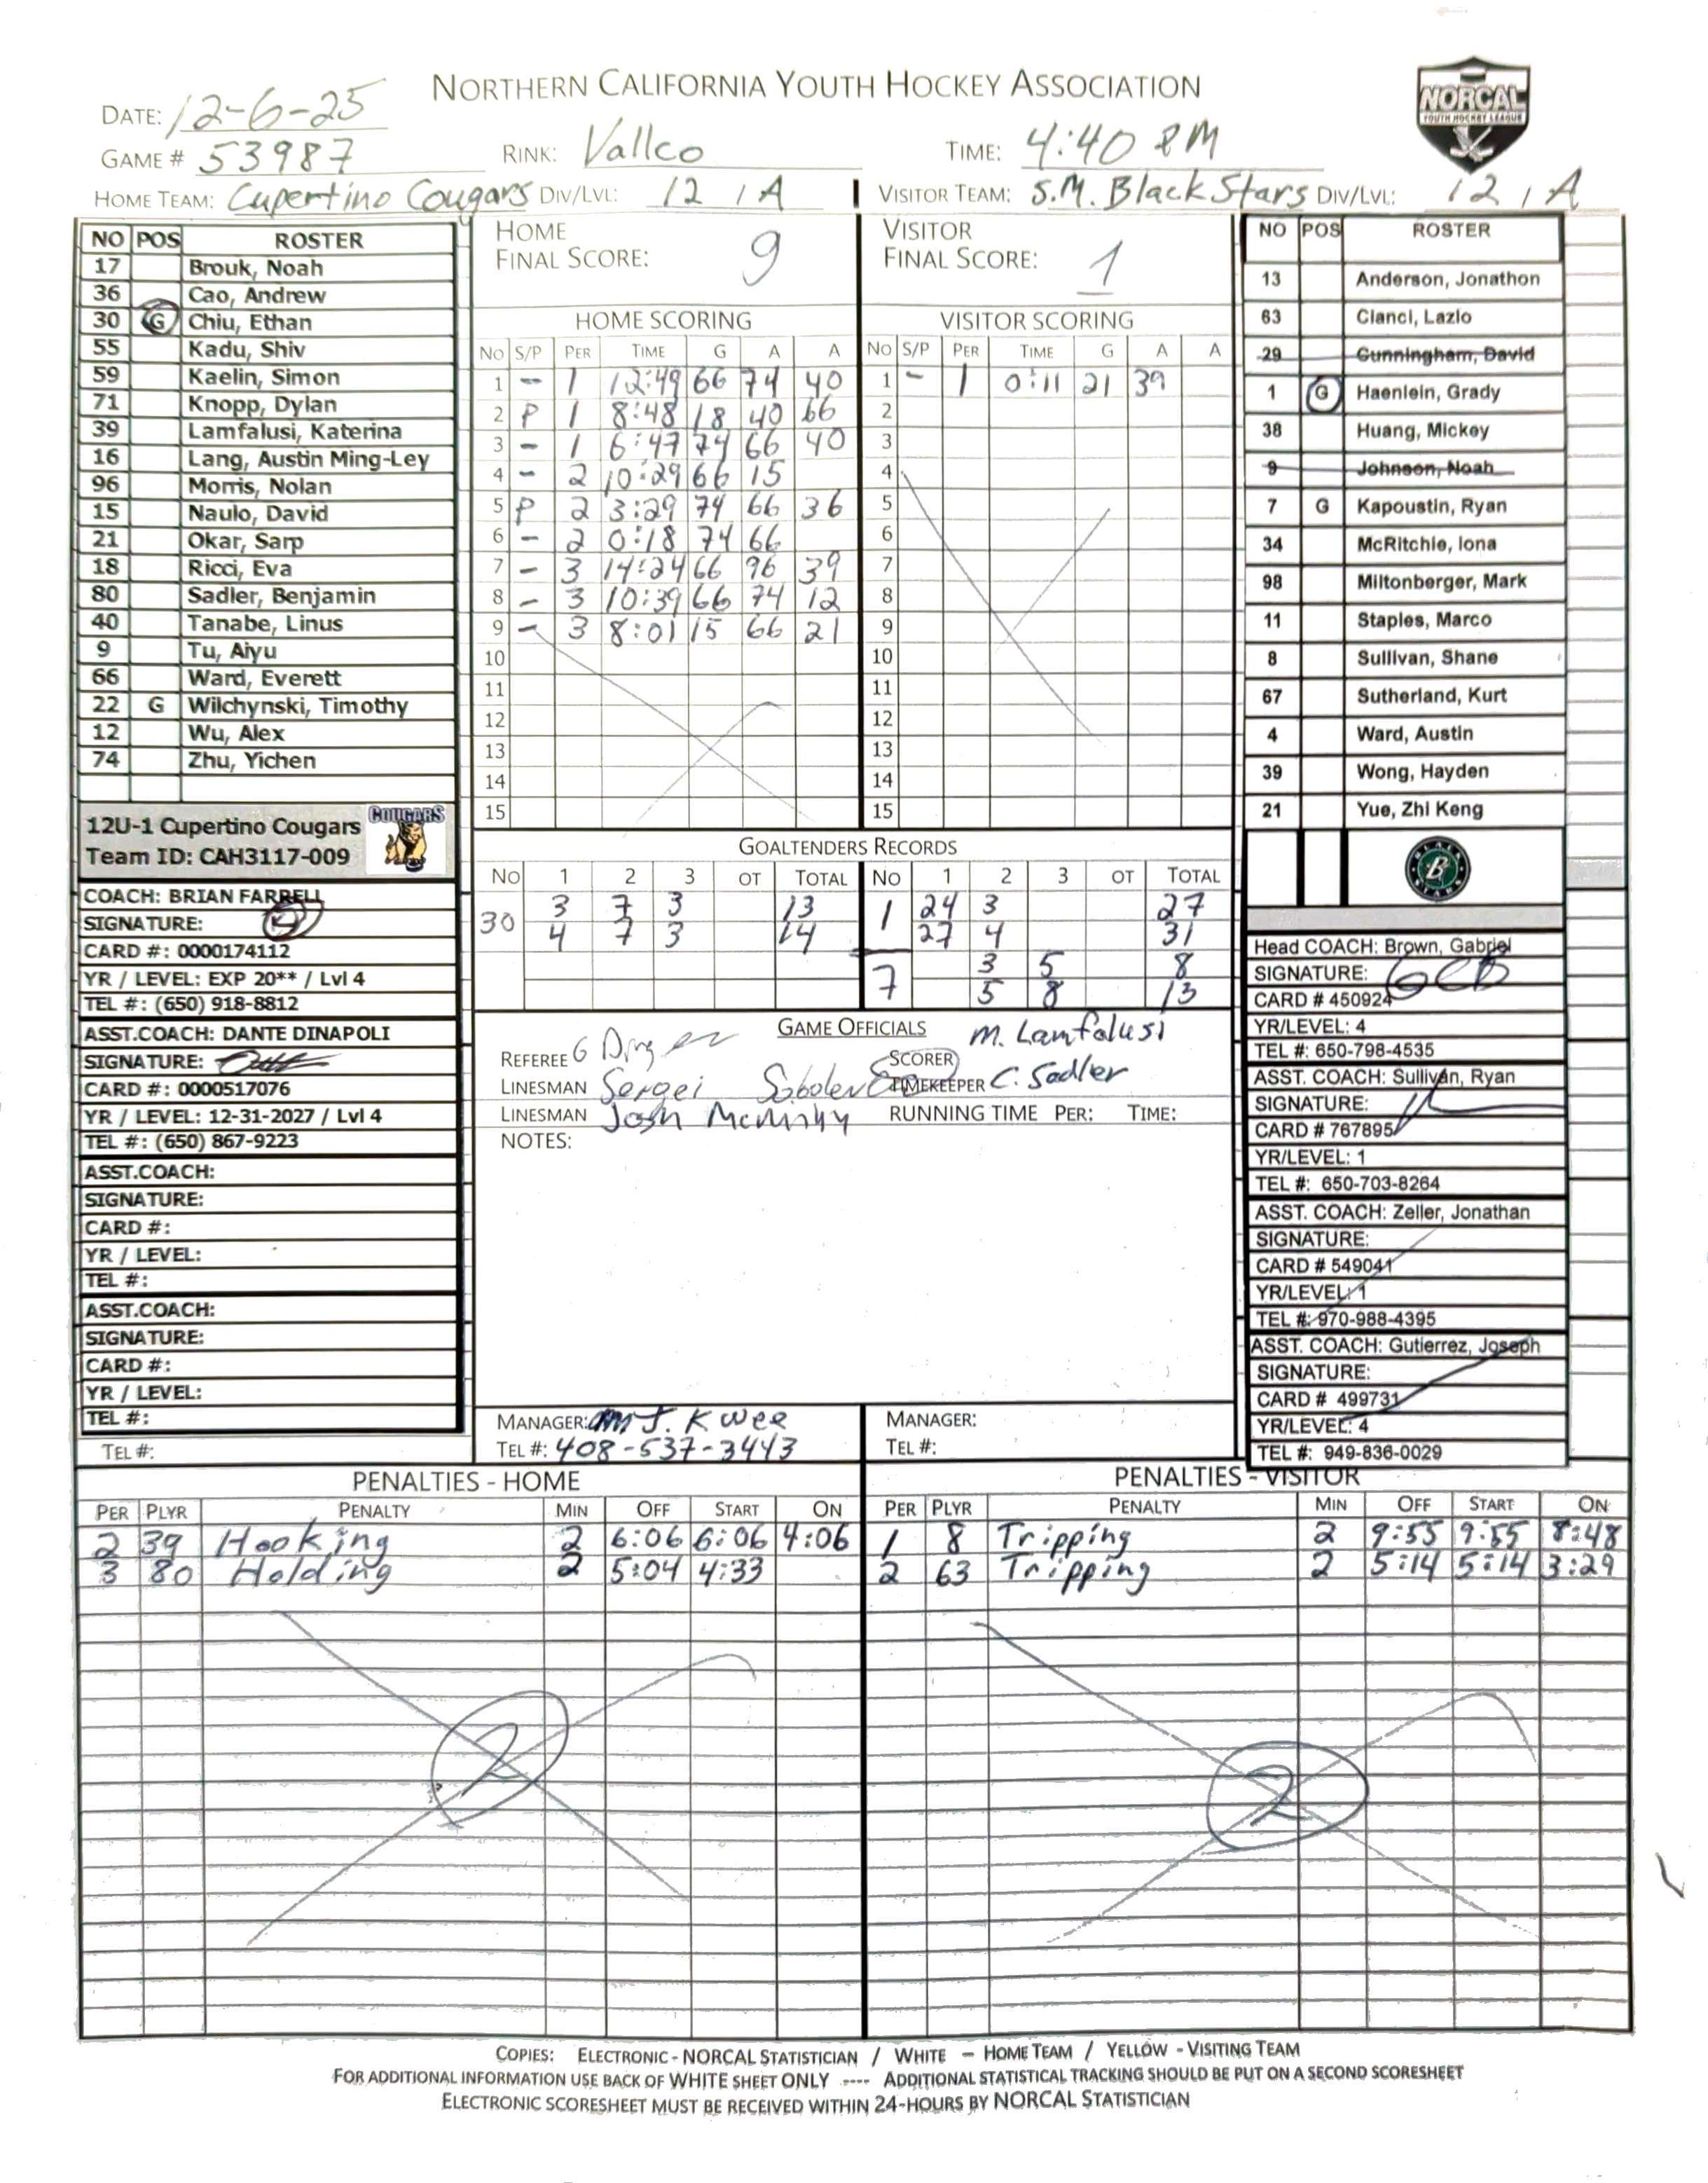 NORTHERN CALIFORNIA YOUTH HOCKEY ASSOCIATION
NORCAL
YOUTH HOCKEY LEAGUE
DATE: 12-6-25
GAME # 53987 RINK: Vallco TIME: 4:40 PM
HOME TEAM: Cupertino Cougars DIV/LVL: 12 / A VISITOR TEAM: S.M. Black Stars DIV/LVL: 12 / A
NO POS ROSTER
17 Brouk, Noah
36 Cao, Andrew
30 G Chiu, Ethan
55 Kadu, Shiv
59 Kaelin, Simon
71 Knopp, Dylan
39 Lamfalusi, Katerina
16 Lang, Austin Ming-Ley
96 Morris, Nolan
15 Naulo, David
21 Okar, Sarp
18 Ricci, Eva
80 Sadler, Benjamin
40 Tanabe, Linus
9 Tu, Aiyu
66 Ward, Everett
22 G Wilchynski, Timothy
12 Wu, Alex
74 Zhu, Yichen
12U-1 Cupertino Cougars
Team ID: CAH3117-009
COUGARS
COACH: BRIAN FARRELL
SIGNATURE:
CARD #: 0000174112
YR / LEVEL: EXP 20** / Lvl 4
TEL #: (650) 918-8812
ASST.COACH: DANTE DINAPOLI
SIGNATURE:
CARD #: 0000517076
YR / LEVEL: 12-31-2027 / Lvl 4
TEL #: (650) 867-9223
ASST.COACH:
SIGNATURE:
CARD #:
YR / LEVEL:
TEL #:
ASST.COACH:
SIGNATURE:
CARD #:
YR / LEVEL:
TEL #:
TEL #:
HOME
FINAL SCORE: 9
HOME SCORING
NO S/P PER TIME G A A
1 - 1 12:49 66 74 40
2 P 1 8:48 18 40 66
3 - 1 6:47 74 66 40
4 - 2 10:29 66 15
5 P 2 3:29 74 66 36
6 - 2 0:18 74 66
7 - 3 14:24 66 96 39
8 - 3 10:39 66 74 12
9 - 3 8:01 15 66 21
10
11
12
13
14
15
VISITOR
FINAL SCORE: 1
VISITOR SCORING
NO S/P PER TIME G A A
1 - 1 0:11 21 39
2
3
4
5
6
7
8
9
10
11
12
13
14
15
GOALTENDERS RECORDS
NO 1 2 3 OT TOTAL NO 1 2 3 OT TOTAL
30 3 7 3 13 1 24 3 27
4 7 3 14 27 4 31
7 3 5 8
5 8 13
GAME OFFICIALS
REFEREE G SCORER M. Lamfalusi
LINESMAN Sergei TIMEKEEPER C. Sadler
LINESMAN Josh RUNNING TIME PER: TIME:
NOTES:
MANAGER: J. Kwee MANAGER:
TEL #: 408-537-3443 TEL #:
NO POS ROSTER
13 Anderson, Jonathon
63 Cianci, Lazlo
29 Cunningham, David
1 G Haenlein, Grady
38 Huang, Mickey
9 Johnson, Noah
7 G Kapoustin, Ryan
34 McRitchie, Iona
98 Miltonberger, Mark
11 Staples, Marco
8 Sullivan, Shane
67 Sutherland, Kurt
4 Ward, Austin
39 Wong, Hayden
21 Yue, Zhi Keng
B
Head COACH: Brown, Gabriel
SIGNATURE: GCB
CARD # 450924
YR/LEVEL: 4
TEL #: 650-798-4535
ASST. COACH: Sullivan, Ryan
SIGNATURE:
CARD # 767895
YR/LEVEL: 1
TEL #: 650-703-8264
ASST. COACH: Zeller, Jonathan
SIGNATURE:
CARD # 549041
YR/LEVEL: 1
TEL #: 970-988-4395
ASST. COACH: Gutierrez, Joseph
SIGNATURE:
CARD # 499731
YR/LEVEL: 4
TEL #: 949-836-0029
PENALTIES - HOME
PER PLYR PENALTY MIN OFF START ON
2 39 Hooking 2 6:06 6:06 4:06
3 80 Holding 2 5:04 4:33
2
PENALTIES - VISITOR
PER PLYR PENALTY MIN OFF START ON
1 8 Tripping 2 9:55 9:55 8:48
2 63 Tripping 2 5:14 5:14 3:29
2
COPIES: ELECTRONIC - NORCAL STATISTICIAN / WHITE – HOME TEAM / YELLOW - VISITING TEAM
FOR ADDITIONAL INFORMATION USE BACK OF WHITE SHEET ONLY ---- ADDITIONAL STATISTICAL TRACKING SHOULD BE PUT ON A SECOND SCORESHEET
ELECTRONIC SCORESHEET MUST BE RECEIVED WITHIN 24-HOURS BY NORCAL STATISTICIAN